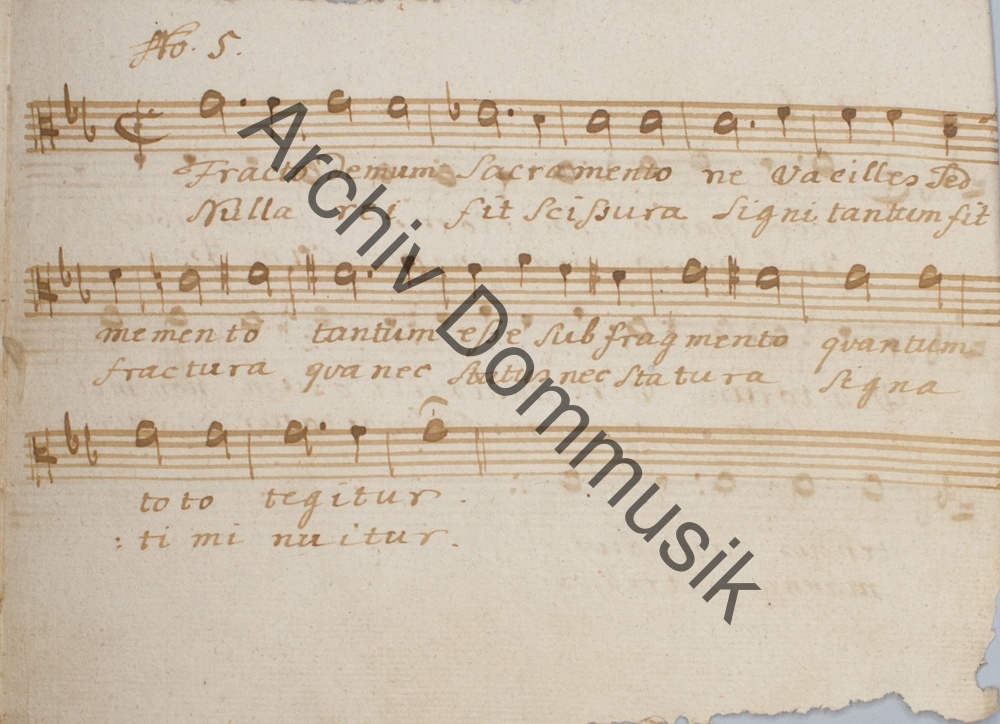 No. 5.
Fracto Demum Sacramento ne Vacilles Sed
Nulla rei fit Scissura Signi tantum fit
memento tantum esse sub fragmento qvantum
fractura qva nec status nec statura signa
toto tegitur.
: ti mi nuitur.
Archiv Dommusik